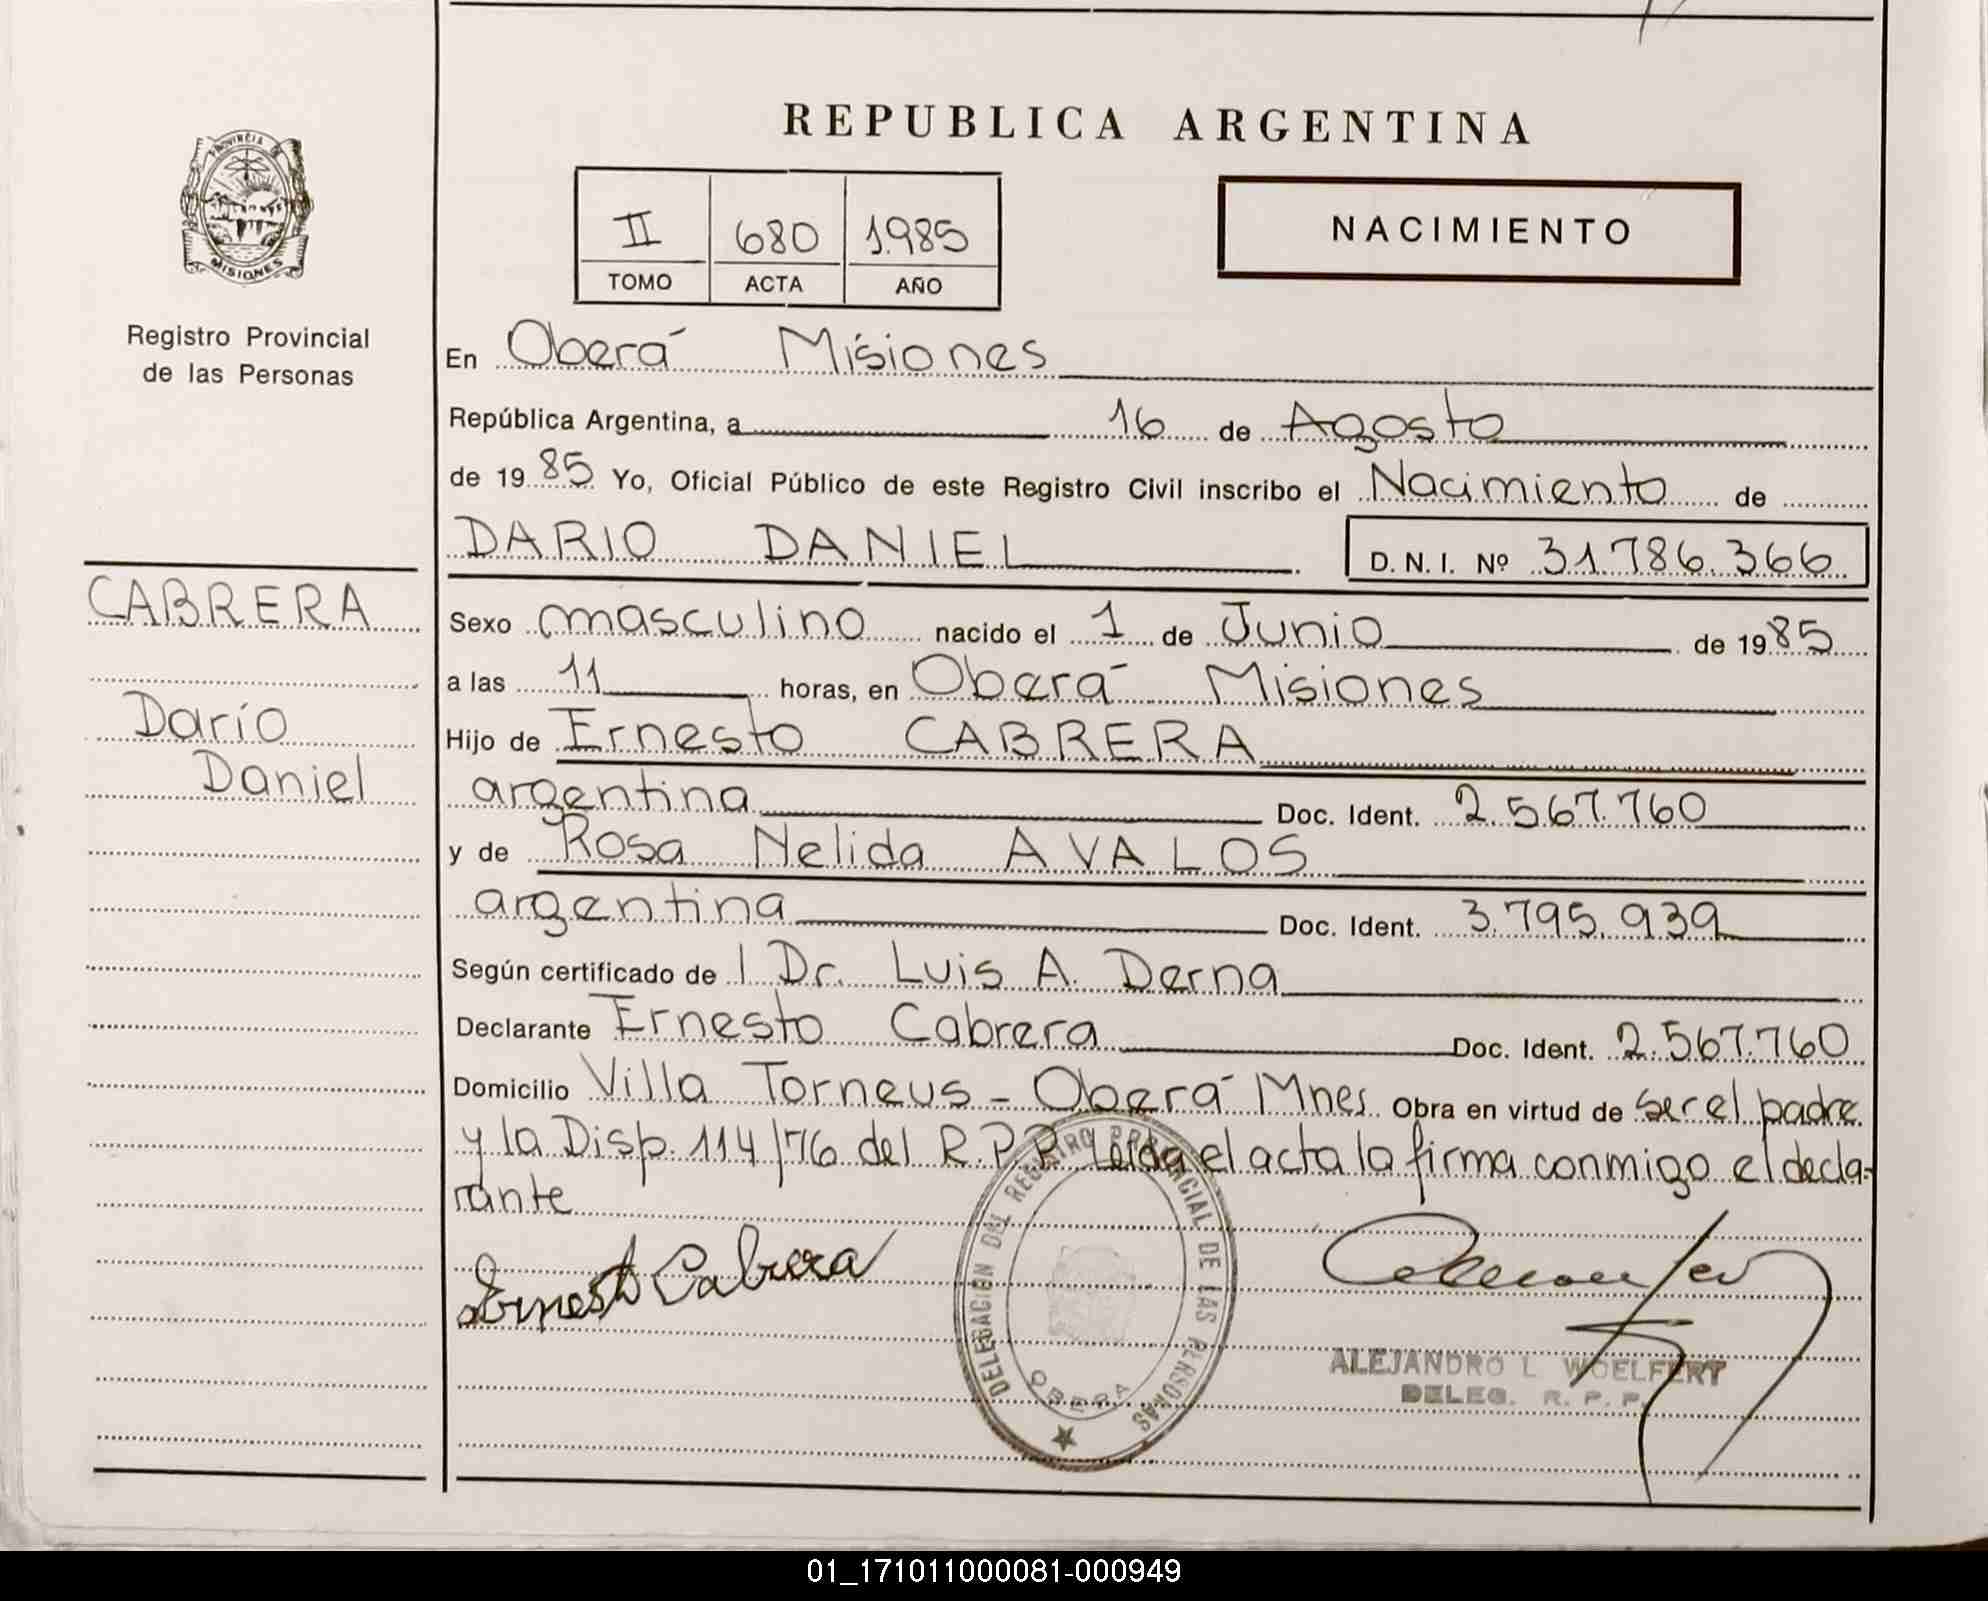 REPUBLICA ARGENTINA
PROVINCIA DE
MISIONES
Registro Provincial
de las Personas
II 680 1.985
TOMO ACTA AÑO
NACIMIENTO
En Oberá Misiones
República Argentina, a 16 de Agosto
de 1985 Yo, Oficial Público de este Registro Civil inscribo el Nacimiento de
DARIO DANIEL D.N.I. Nº 31.786.366
CABRERA
Darío
Daniel
Sexo masculino nacido el 1 de Junio de 1985
a las 11 horas, en Oberá Misiones
Hijo de Ernesto CABRERA
argentina Doc. Ident. 2.567.760
y de Rosa Nelida AVALOS
argentina Doc. Ident. 3.795.939
Según certificado de l Dr. Luis A. Derna
Declarante Ernesto Cabrera Doc. Ident. 2.567.760
Domicilio Villa Torneus - Oberá Mnes. Obra en virtud de ser el padre
y la Disp. 114/76 del R.P.P. Leída el acta la firma conmigo el decla-
rante
Ernesto Cabrera
DELEGACION DEL REGISTRO PROVINCIAL DE LAS PERSONAS
OBERA
ALEJANDRO L. WOELFERT
DELEG. R. P. P.
01_171011000081-000949